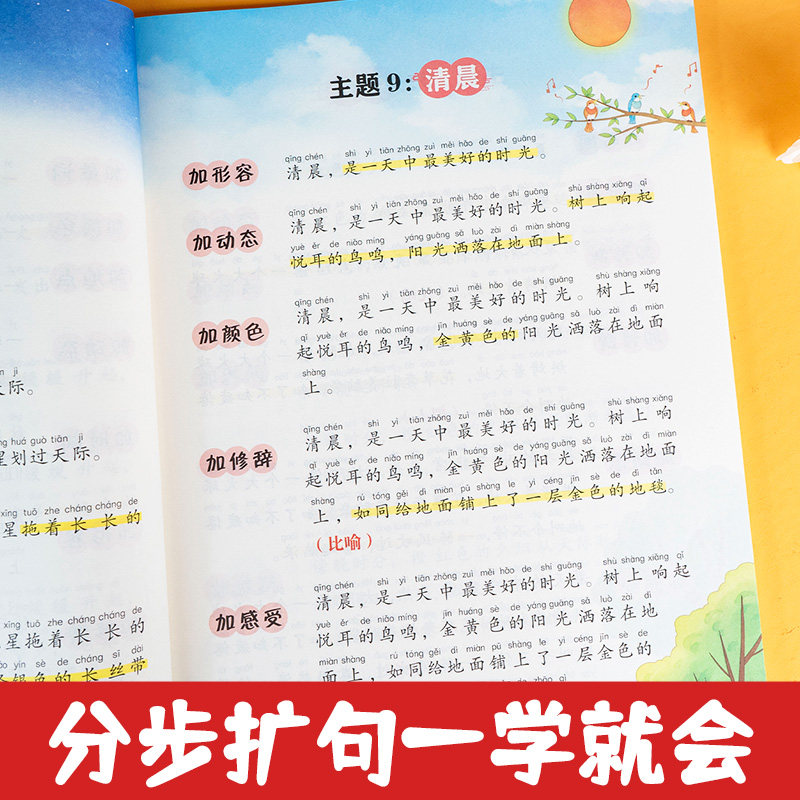 主题9：清晨
加形容
qīng chén shì yì tiān zhōng zuì měi hǎo de shí guāng
清晨，是一天中最美好的时光。
加动态
qīng chén shì yì tiān zhōng zuì měi hǎo de shí guāng shù shàng xiǎng qǐ
清晨，是一天中最美好的时光。树上响起
yuè ěr de niǎo míng yáng guāng sǎ luò zài dì miàn shàng
悦耳的鸟鸣，阳光洒落在地面上。
加颜色
qīng chén shì yì tiān zhōng zuì měi hǎo de shí guāng shù shàng xiǎng
清晨，是一天中最美好的时光。树上响
qǐ yuè ěr de niǎo míng jīn huáng sè de yáng guāng sǎ luò zài dì miàn
起悦耳的鸟鸣，金黄色的阳光洒落在地面
shàng
上。
加修辞
qīng chén shì yì tiān zhōng zuì měi hǎo de shí guāng shù shàng xiǎng
清晨，是一天中最美好的时光。树上响
qǐ yuè ěr de niǎo míng jīn huáng sè de yáng guāng sǎ luò zài dì miàn
起悦耳的鸟鸣，金黄色的阳光洒落在地面
shàng rú tóng gěi dì miàn pū shàng le yì céng jīn sè de dì tǎn
上，如同给地面铺上了一层金色的地毯。
（比喻）
加感受
qīng chén shì yì tiān zhōng zuì měi hǎo de shí guāng shù shàng xiǎng qǐ
清晨，是一天中最美好的时光。树上响起
yuè ěr de niǎo míng jīn huáng sè de yáng guāng sǎ luò zài dì
悦耳的鸟鸣，金黄色的阳光洒落在地
miàn shàng rú tóng gěi dì miàn pū shàng le yì céng jīn sè de
面上，如同给地面铺上了一层金色的
n jì
天际。
ng huá guò tiān jì
星划过天际。
xīng tuō zhe cháng cháng de
星拖着长长的
xīng tuō zhe cháng cháng de
星拖着长长的
yín sè de cháng sī dài
银色的长丝带
分步扩句一学就会